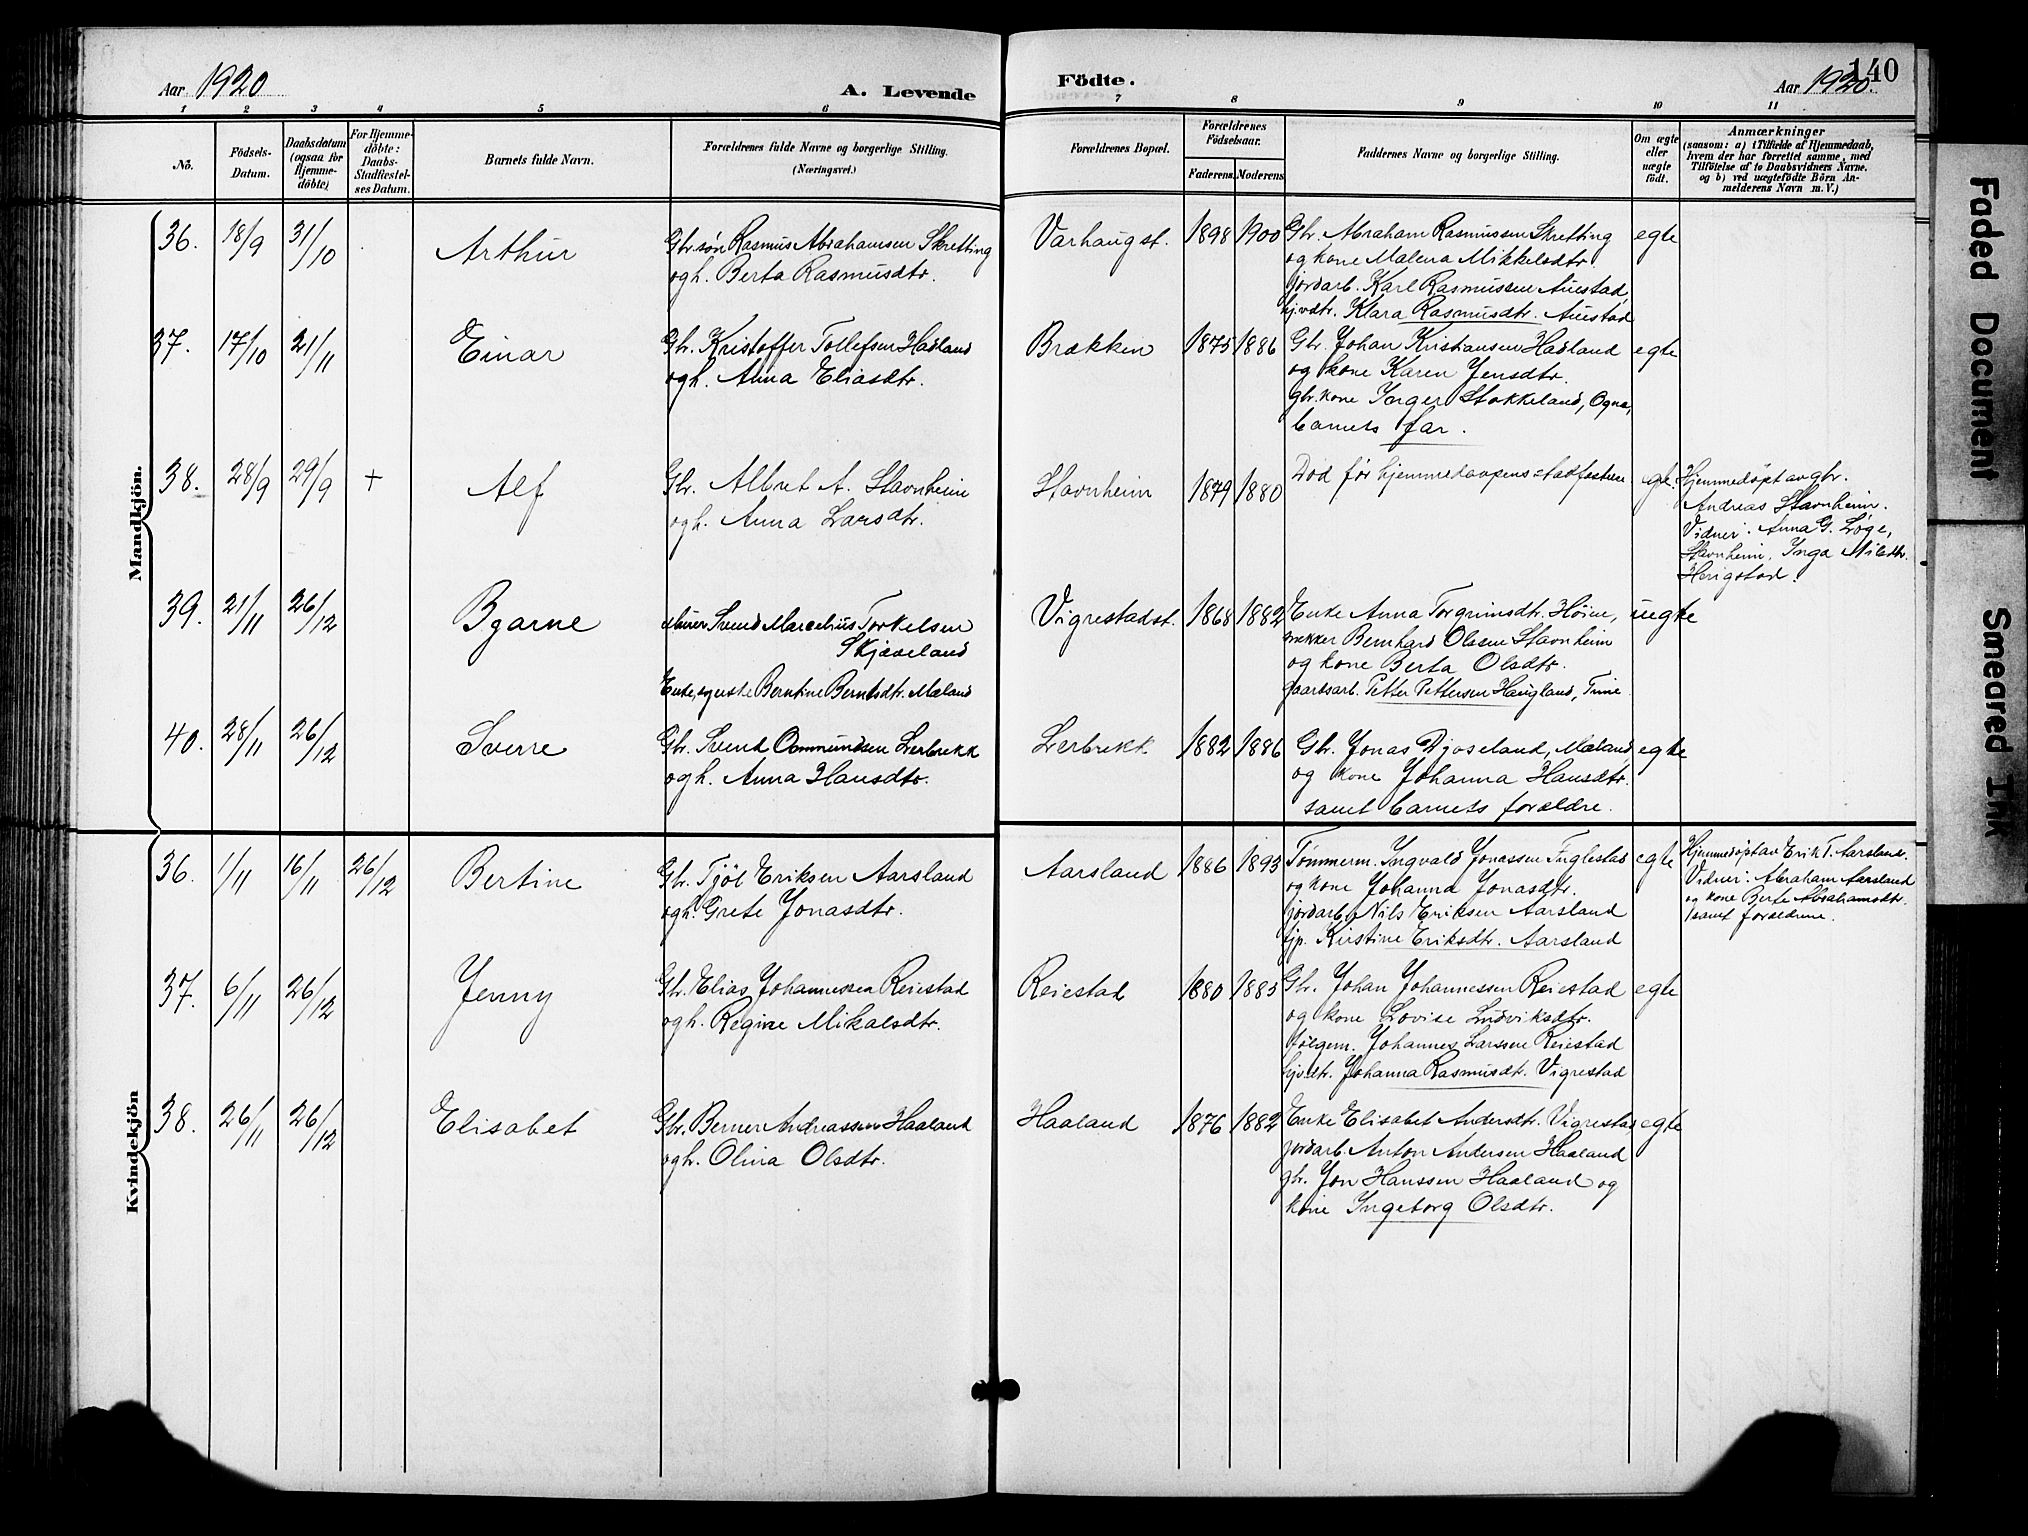 Aar 1920
A. Levende
Födte.
Aar 1920.
140
1 2 3 4 5 6 7 8 9 10 11
Nö.
Födsels-
Datum.
Daabsdatum
(ogsaa for
Hjemme-
döbte)
For Hjemme-
döbte:
Daabs-
Stadfæstel-
ses Datum.
Barnets fulde Navn.
Forældrenes fulde Navne og borgerlige Stilling.
(Næringsvei.)
Forældrenes Bopæl.
Forældrenes
Födselsaar.
Faderens. Moderens.
Faddernes Navne og borgerlige Stilling.
Om ægte
eller
uægte
födt.
Anmærkninger
(saasom: a) i Tilfælde af Hjemmedaab,
hvem der har forrettet samme, med
Tilföielse af to Daabsvidners Navne.
og b) ved uægtefödte Börn An-
melderens Navn m. V.)
Mandkjön.
36. 18/9 31/10 Arthur
Gbr.søn Rasmus Abrahamsen Skretting
og h. Berta Rasmusdtr.
Varhaug st. 1898 1900
Gbr. Abraham Rasmussen Skretting
og kone Malena Mikkelsdtr.
jordarb. Karl Rasmussen Auestad,
hjvdtr. Klara Rasmusdtr. Auestad
egte
37. 17/10 21/11 Einar
Gbr. Kristoffer Tollefsen Hadland
og h. Anna Eliasdtr.
Brækken 1875 1886
Gbr. Johan Kristiansen Hadland
og kone Karen Jensdtr.
gbr. kone Inger Stokkeland, Ogna,
barnets far.
egte
38. 28/9 29/9 + Alf
Gbr. Albret A. Stavnheim
og h. Anna Larsdtr.
Stavnheim 1879 1880
Död før hjemmedaapens stadfæstelse
egte.
Hjemmedøpt av gbr.
Andreas Stavnheim.
Vidner: Anna G. Løge,
Stavnheim, Inga
Herigstad.
39. 21/11 26/12 Bjarne
Murer Svend Marcelius Torkelsen
Skjæveland
Enke, Berntine Berntsdtr. Mæland
Vigrestad st. 1868 1882
Enke Anna Torgrimsdtr. Høien,
snekker Bernhard Olsen Stavnheim
og kone Berta Olsdtr.
gaardsarb. Petter Pettersen Haugland, Time
uegte
40. 28/11 26/12 Sverre
Gbr. Svend Ommundsen Lerbrekk
og h. Anna Hansdtr.
Lerbrekk. 1882 1886
Gbr. Jonas Djøseland, Mæland,
og kone Johanna Hansdtr.
samt barnets forældre.
egte
Kvindekjön
36. 1/11 16/11 26/12 Bertine
Gbr. Tjöl Eriksen Aarsland
og h. Grete Jonasdtr.
Aarsland 1886 1893
Tømmerm. Ingvald Jonassen Inglestad
og kone Johanna Jonasdtr.
jordarb. Nils Eriksen Aarsland
tjp. Kirstine Eriksdtr. Aarsland
egte
Hjemmedöpt av Erik T. Aarsland.
Vidner: Abraham Aarsland
og kone Berte Abrahamsdtr.
samt forældrene.
37. 6/11 26/12 Jenny
Gbr. Elias Johannessen Reiestad
og h. Regine Mikalsdtr.
Reiestad 1880 1885
Gbr. Johan Johannessen Reiestad
og kone Lovise Ludviksdtr.
følgem. Johannes Larssen Reiestad
hjv.dtr. Johanna Rasmusdtr. Vigrestad
egte
38. 26/11 26/12 Elisabet
Gbr. Berner Andreassen Haaland
og h. Olina Olsdtr.
Haaland 1876 1882
Enke Elisabet Andersdtr. Vigrestad,
jordarb. Anton Andersen Haaland
gbr. Jon Hanssen Haaland og
kone Ingeborg Olsdtr.
egte
Faded Document
Smeared Ink